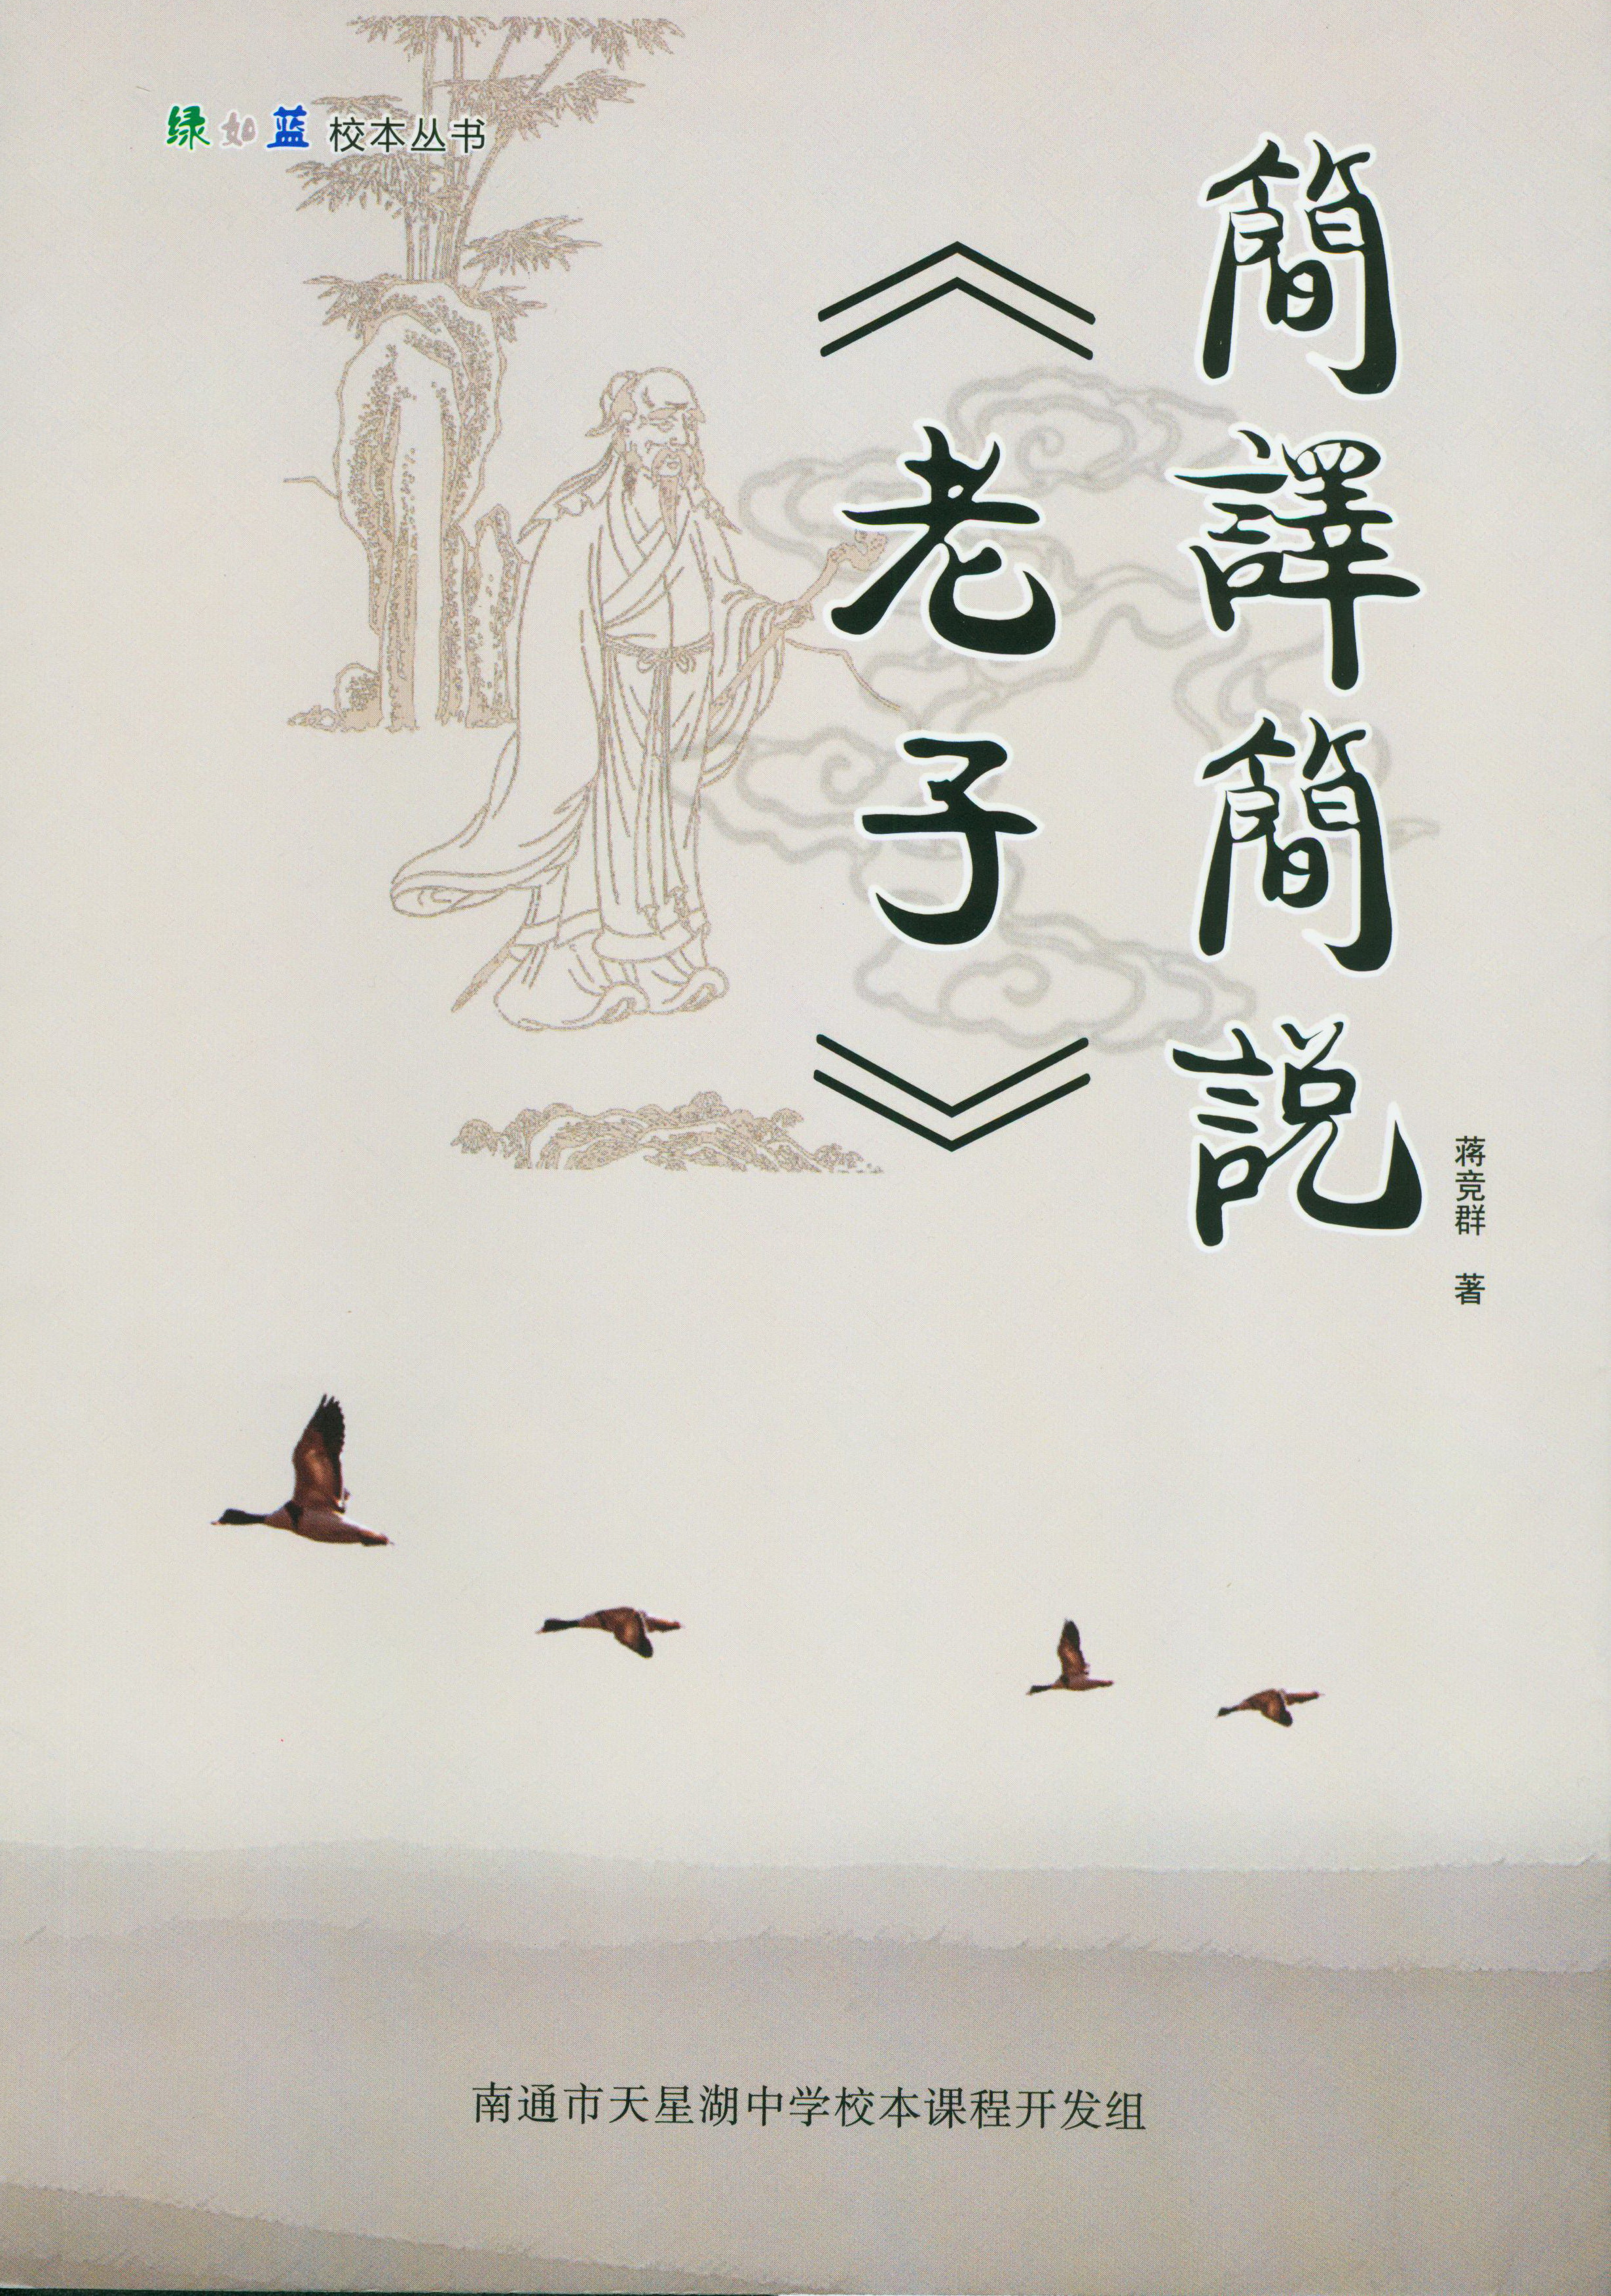 绿如蓝 校本丛书
簡譯簡説
《老子》
蒋竞群 著
南通市天星湖中学校本课程开发组